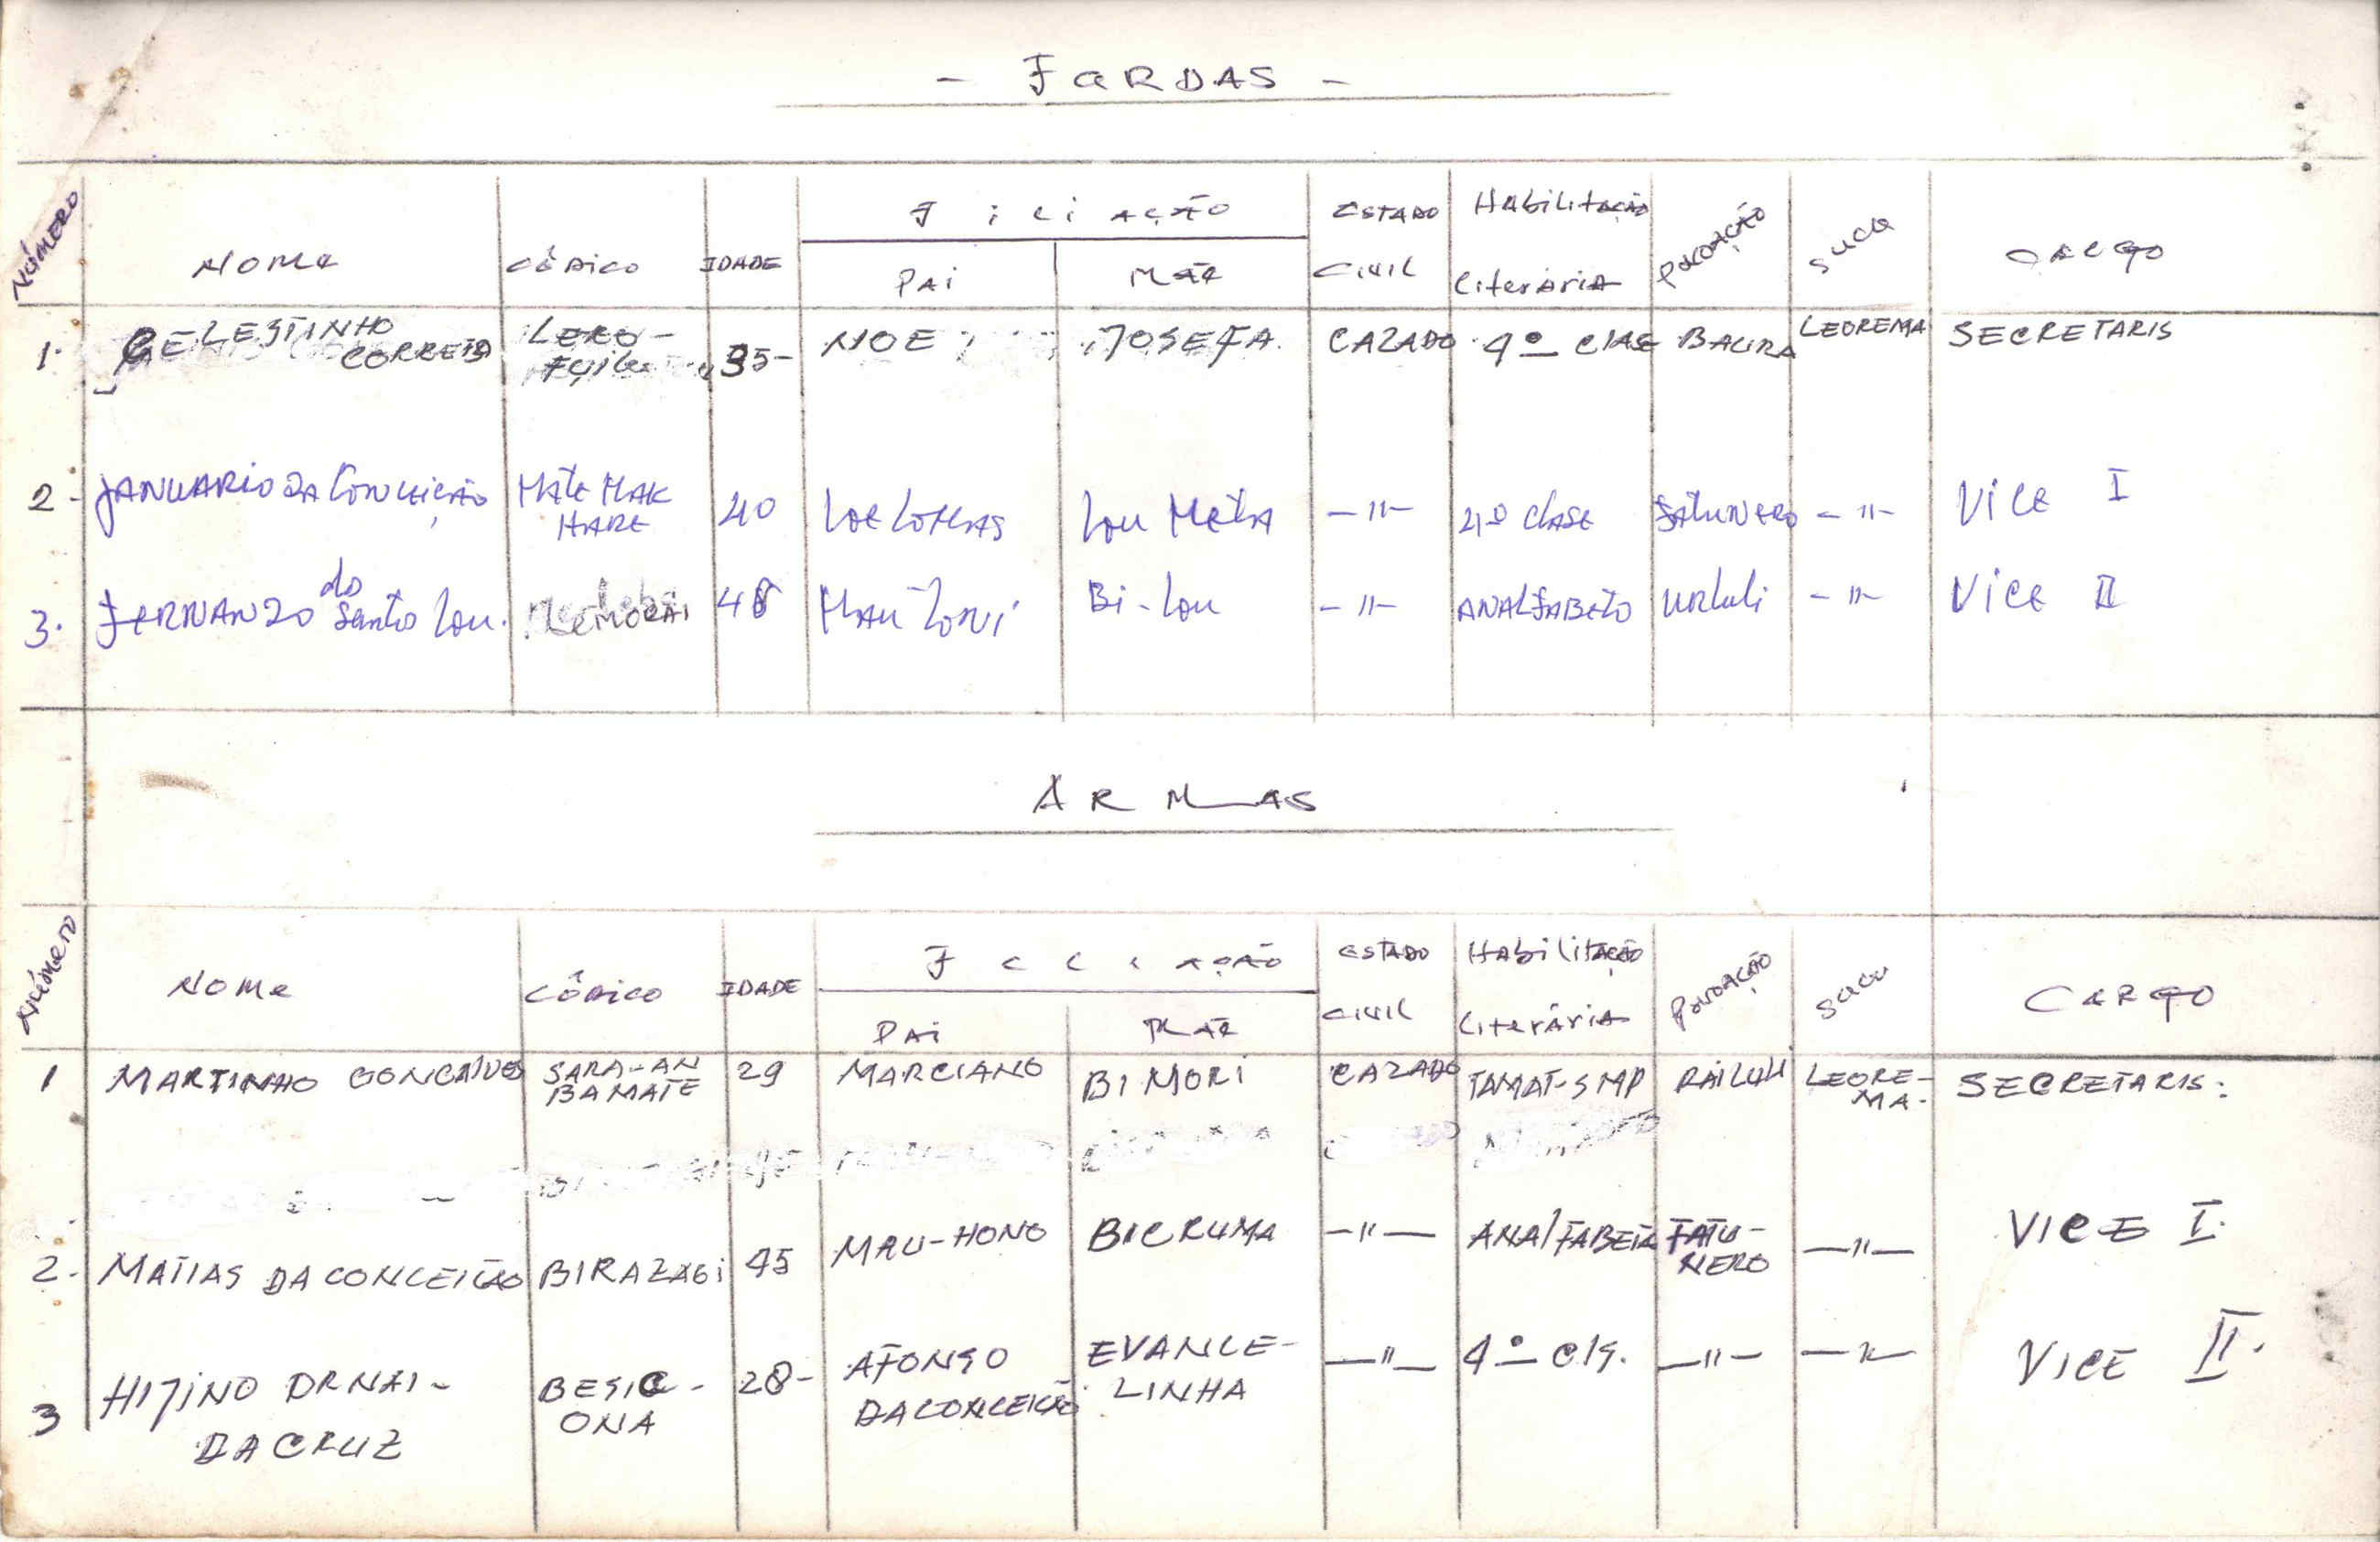 - FARDAS -
Número Nome Côdico IDADE Filiação ESTADO CIVIL Habilitação Literária Povoação Suca CARGO
Pai Mãe
1. CELESTINHO CORREIA LERO- 35- NOE JOSEFA. CAZADO 4º CLASE BAURA LEOREMA SECRETARIS
2- JANUARIO DA CONCEIÇÃO MATE MAK HARE 40 LOE LOMAS LOU META -"- 4º CLASE FATUNERO -"- VICE I
3. FERNANDO do Santo Lou. LEMORAI 48 MAU LORI BI-LOU -"- ANALFABETO URLULI -"- VICE II
ARMAS
Número Nome Côdico IDADE Filiação ESTADO CIVIL Habilitação Literária Povoação Sucu CARGO
Pai Mãe
1 MARTINHO GONCALVES SARA-AN BAMATE 29 MARCIANO BI MORI CAZADO TAMAT-SMP RAILULI LEORE-MA. SECRETARIS:
2. MATIAS DA CONCEICÃO BIRAZAGI 45 MAU-HONO BICRUMA -"- ANALFABETA FATU-NERO -"- VICE I.
3 HIJINO ORNAI- DA CRUZ BESIC-ONA 28- AFONSO DA CONCEICÃO EVANCE-LINHA -"- 4º CLS. -"- -"- VICE II.